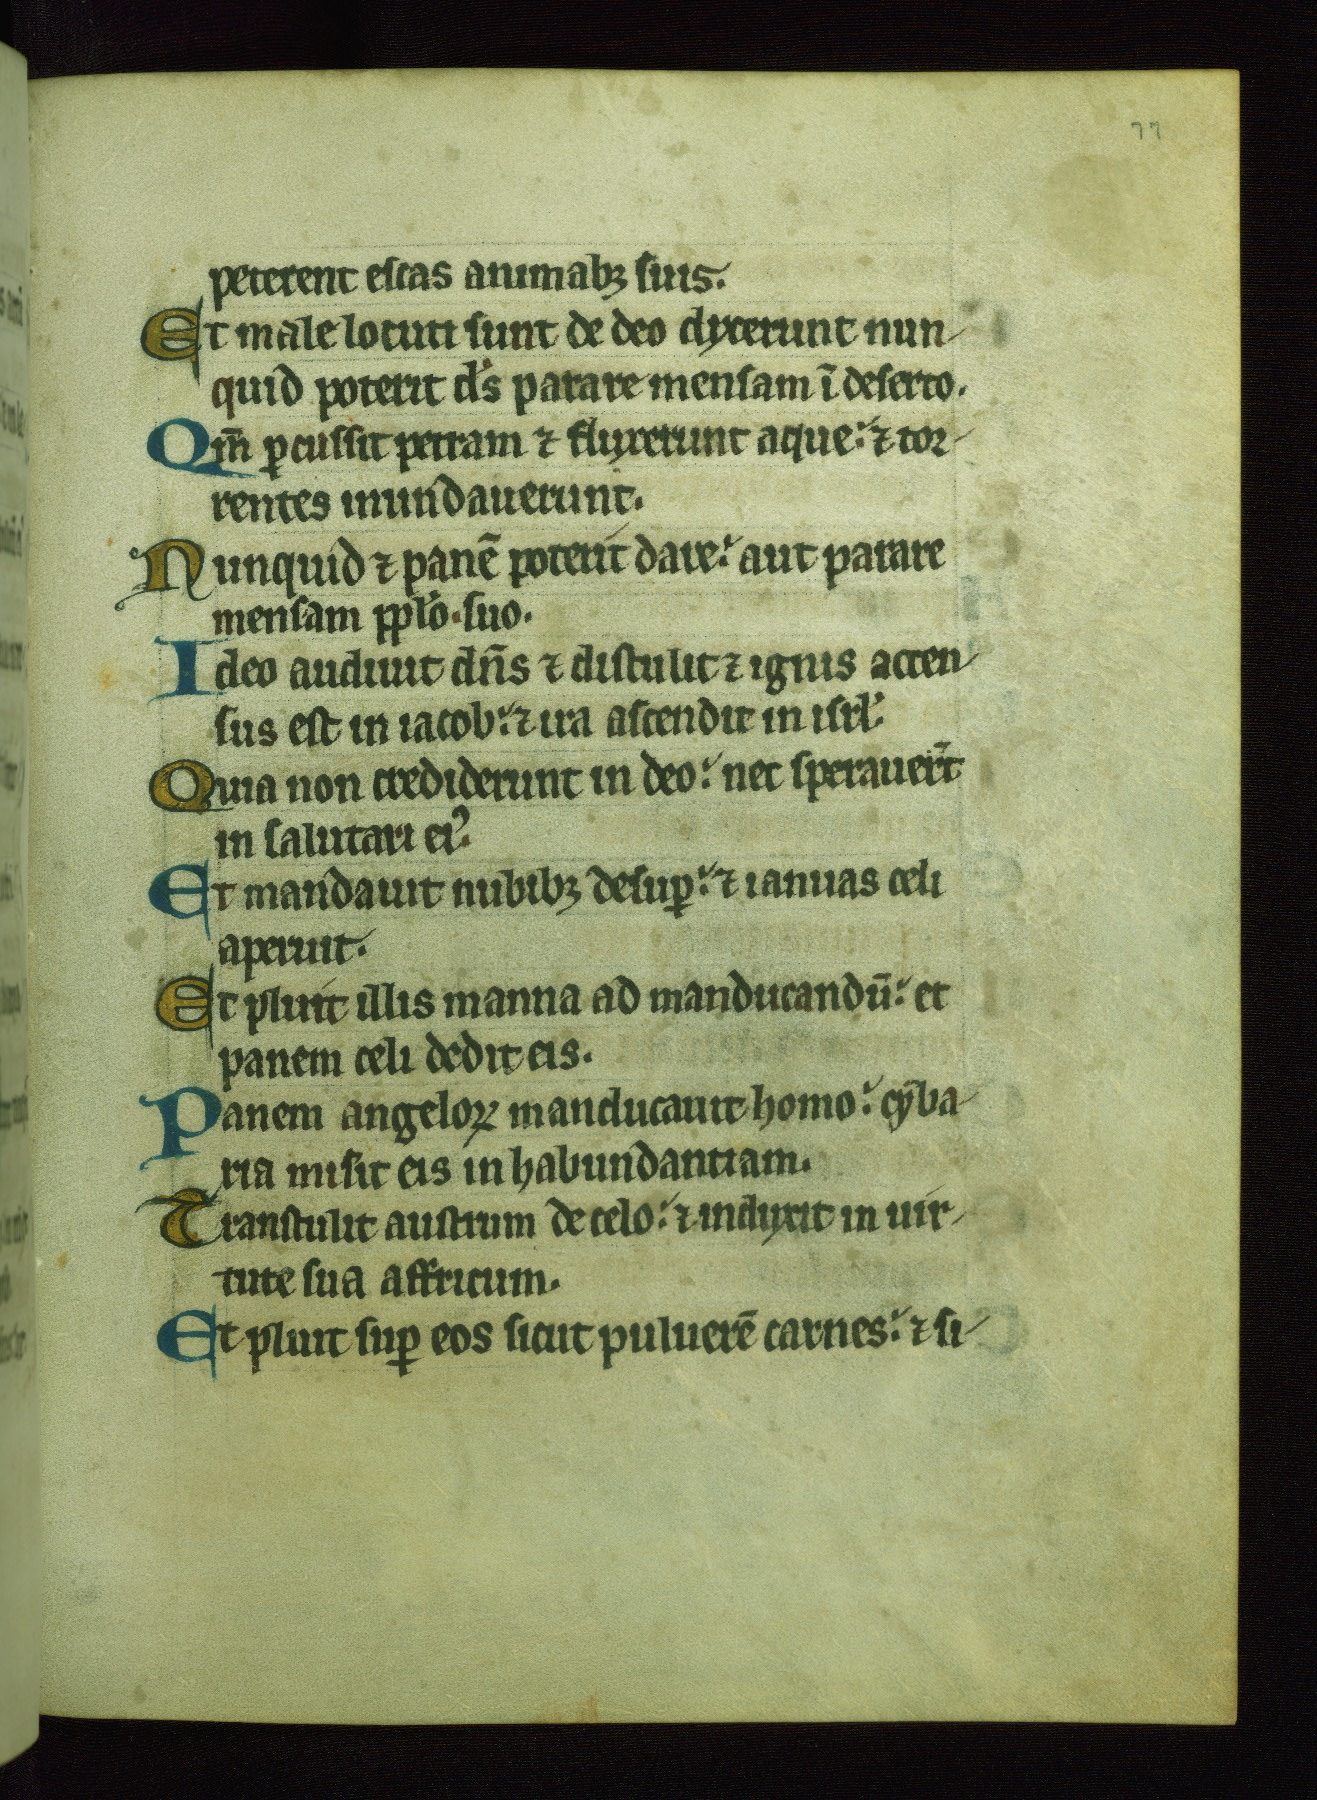 77
peterent escas animabꝫ suis.
Et male locuti sunt de deo dyxerunt nun-
quid poterit ds̄ parare mensam ī deserto.
Qm̄ ꝑcussit petram ⁊ fluxerunt aque: ⁊ tor-
rentes inundauerunt.
Nunquid ⁊ panē poterit dare: aut parare
mensam pplo suo.
Ideo audiuit dn̄s ⁊ distulit ⁊ ignis accen-
sus est in iacob: ⁊ ira ascendit in isrl.
Quia non crediderunt in deo: nec sperauer̄t
in salutari eiꝰ.
Et mandauit nubibꝫ desuꝑ: ⁊ ianuas celi
aperuit.
Et pluit illis manna ad manducandū: et
panem celi dedit eis.
Panem angeloꝝ manducauit homo: cyba-
ria misit eis in habundantiam.
Transtulit austrum de celo: ⁊ induxit in uir-
tute sua affricum.
Et pluit suꝑ eos sicut puluerē carnes: ⁊ si-